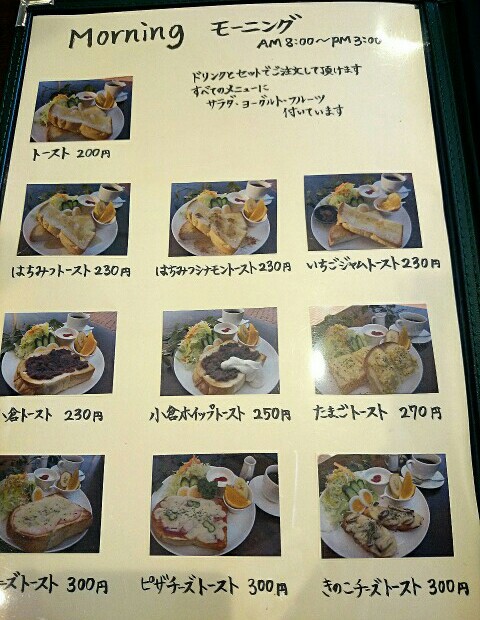 Morning モーニング
AM 8:00～PM 3:00
ドリンクとセットでご注文して頂けます
すべてのメニューに
サラダ・ヨーグルト・フルーツ
付いています
トースト 200円
はちみつトースト 230円
はちみつシナモントースト 230円
いちごジャムトースト 230円
倉トースト 230円
小倉ホイップトースト 250円
たまごトースト 270円
ーズトースト 300円
ピザチーズトースト 300円
きのこチーズトースト 300円